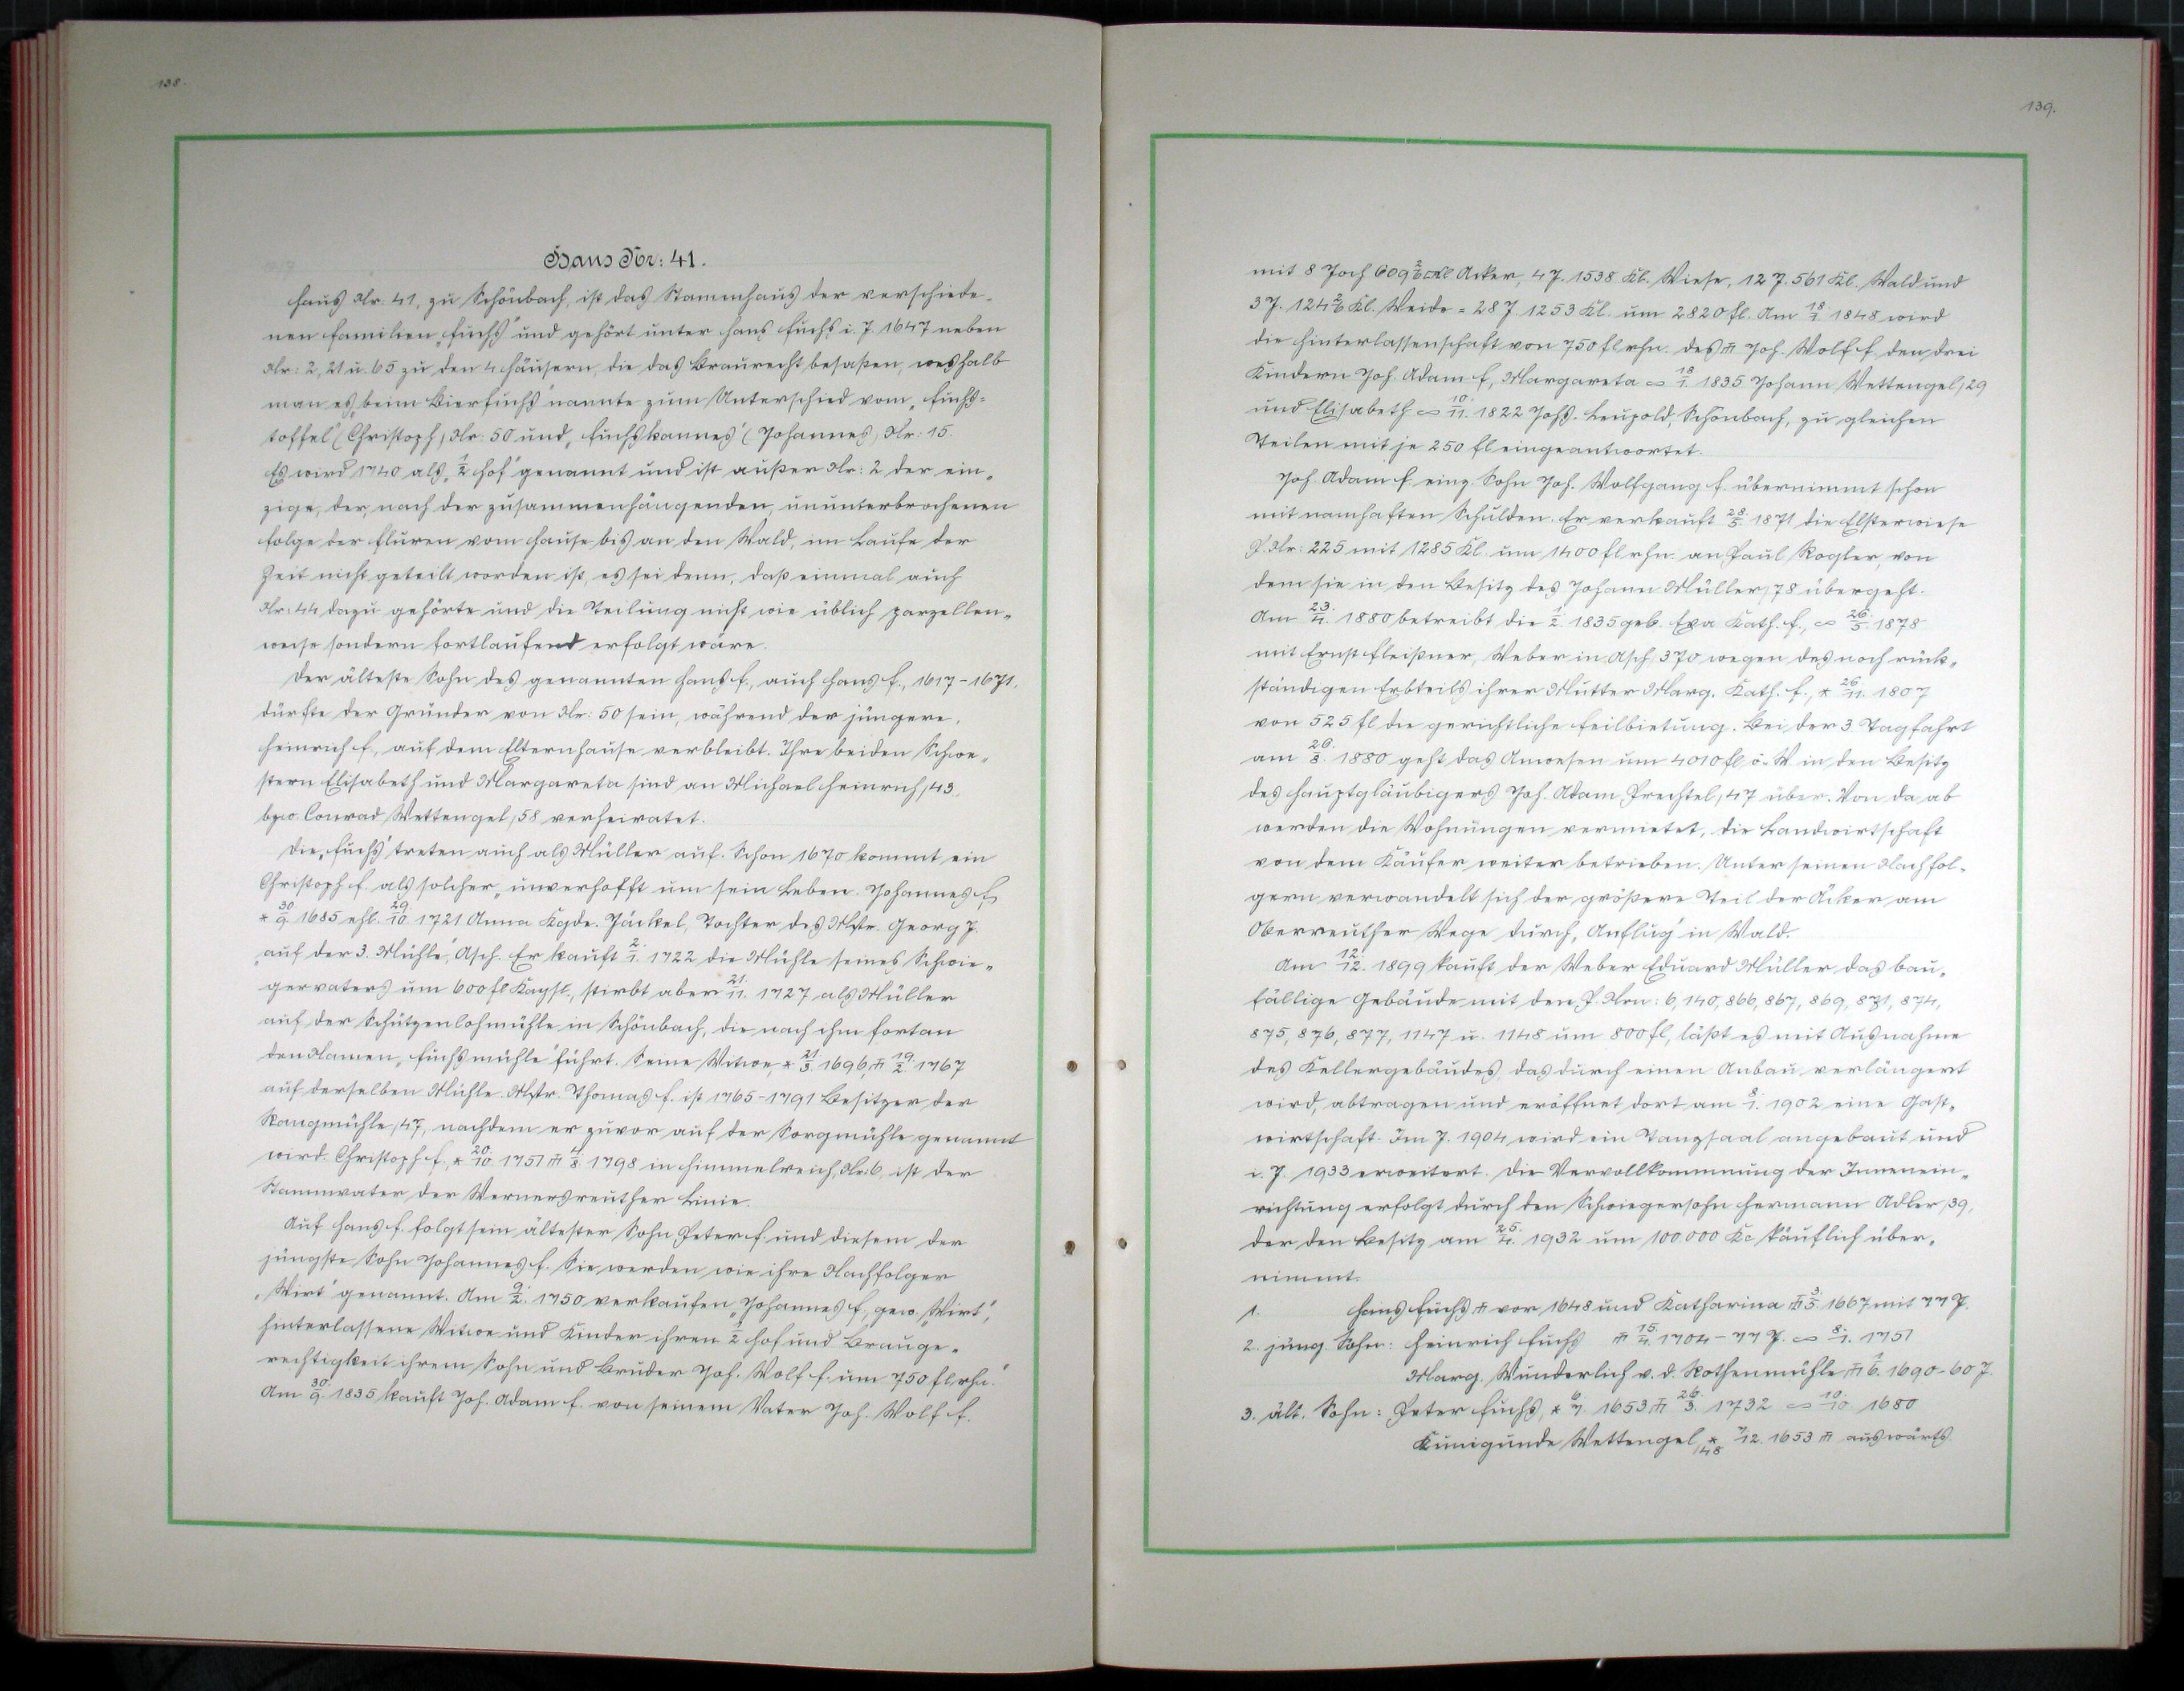 138.
Haus Nr: 41.
Haus Nr. 41, zu Schönbach, ist das Stammhaus der verschiede-
nen Familien „Fuchs“ und gehört unter Hans Fuchs i. J. 1647 neben
Nr: 2, 21 u. 65 zu den 4 Häusern, die das Braurecht besaßen, weshalb
man es „beim Bierfuchs“ nannte zum Unterschied vom „Fuchs-
toffel“ (Christoph) Nr: 50 und „Fuchskannes“ (Johannes) Nr: 15.
Es wird 1740 als „½ Hof“ genannt und ist außer Nr: 2 der ein-
zige, der, nach der zusammenhängenden, ununterbrochenen
Folge der Fluren vom Hause bis an den Wald, im Laufe der
Zeit nicht geteilt worden ist, es sei denn, daß einmal auch
Nr: 44 dazu gehörte und die Teilung nicht wie üblich parzellen-
weise sondern fortlaufend erfolgt wäre.
Der älteste Sohn des genannten Hans F., auch Hans F., 1617-1671,
dürfte der Gründer von Nr: 50 sein, während der jüngere,
Heinrich F., auf dem Elternhause verbleibt. Ihre beiden Schwe-
stern Elisabeth und Margareta sind an Michael Heinrich/43,
bzw. Conrad Wettengel/58 verheiratet.
Die „Fuchs“ treten auch als Müller auf. Schon 1670 kommt ein
Christoph F. als solcher „unverhofft um sein Leben. Johannes F
* 30./9. 1685 ehl. 29./10. 1721 Anna Kgde. Jäckel, Tochter des Mstr. Georg J.
„auf der 3. Mühle“, Asch. Er kauft 2./1. 1722 die Mühle seines Schwie-
gervaters um 600 fl Kaysl., stirbt aber 21./11. 1727 als Müller
auf der Schützenlohmühle in Schönbach, die nach ihm fortan
den Namen „Fuchsmühle“ führt. Seine Witwe, * 21./3. 1696, 𐋄 19./2. 1767
auf derselben Mühle. Mstr. Thomas F. ist 1765-1791 Besitzer der
Rangmühle/47, nachdem er zuvor auf der Sorgmühle genannt
wird. Christoph F., * 20./10. 1751 𐋄 4./8. 1798 in Himmelreich, Nr. 6, ist der
Stammvater der Wernersreuther Linie.
Auf Hans F. folgt sein ältester Sohn Peter F. und diesem der
jüngste Sohn Johannes F. Sie werden wie ihre Nachfolger
„Wirt“ genannt. Am 9./2. 1750 verkaufen „Johannes F., gew. Wirt“,
hinterlassene Witwe und Kinder ihren ½ Hof und Brauge-
rechtigkeit ihrem Sohn und Bruder Joh. Wolf F. um 750 fl rhn.“
Am 30./9. 1835 kauft Joh. Adam F. von seinem Vater Joh. Wolf F.
139.
mit 8 Joch 609 2/6 □Kl Äcker, 4 J. 1538 Kl. Wiese, 12 J. 561 Kl. Wald und
3 J. 124 2/6 Kl. Weide = 28 J. 1253 Kl. um 2820 fl. Am 18./1. 1848 wird
die Hinterlassenschaft von 750 fl rhn. des 𐋄 Joh. Wolf F. den drei
Kindern Joh. Adam F., Margareta ∞ 18./1. 1835 Johann Wettengel/29
und Elisabeth ∞ 10./11. 1822 Johs. Leupold, Schönbach, zu gleichen
Teilen mit je 250 fl eingeantwortet.
Joh. Adam F. einz. Sohn Joh. Wolfgang F. übernimmt schon
mit namhaften Schulden. Er verkauft 28./5. 1871 die Elsterwiese
P. Nr: 225 mit 1285 Kl. um 1400 fl rhn. an Paul Rogler, von
dem sie in den Besitz des Johann Müller/78 übergeht.
Am 23./4. 1880 betreibt die 1./2. 1835 geb. Eva Kath. F., ∞ 26./5. 1878
mit Ernst Fleißner, Weber in Asch/370 wegen des noch rück-
ständigen Erbteils ihrer Mutter Marg. Kath. F., * 26./11. 1807
von 525 fl die gerichtliche Feilbietung. Bei der 3. Tagfahrt
am 26./8. 1880 geht das Anwesen um 4010 fl ö. W in den Besitz
des Hauptgläubigers Joh. Adam Prechtel/47 über. Von da ab
werden die Wohnungen vermietet, die Landwirtschaft
von dem Käufer weiter betrieben. Unter seinen Nachfol-
gern verwandelt sich der größere Teil der Äcker am
Oberreuther Wege durch „Anflug“ in Wald.
Am 12./12. 1899 kauft der Weber Eduard Müller das bau-
fällige Gebäude mit den P. Nrn: 6, 140, 866, 867, 869, 871, 874,
875, 876, 877, 1147 u. 1148 um 800 fl, läßt es mit Ausnahme
des Kellergebäudes, das durch einen Anbau verlängert
wird, abtragen und eröffnet dort am 8./1. 1902 eine Gast-
wirtschaft. Im J. 1904 wird ein Tanzsaal angebaut und
i. J. 1933 erweitert. Die Vervollkommnung der Innenein-
richtung erfolgt durch den Schwiegersohn Hermann Adler/39,
der den Besitz am 25./4. 1932 um 100.000 Kc käuflich über-
nimmt.
1. Hans Fuchs 𐋄 vor 1648 und Katharina 𐋄 3./5. 1667 mit 77 J.
2. jüng. Sohn: Heinrich Fuchs 𐋄 15./4. 1704 - 77 J. ∞ 8./1. 1751
Marg. Wunderlich v. d. Rothenmühle 𐋄 1./6. 1690 - 60 J.
3. ält. Sohn: Peter Fuchs, * 6./7. 1653 𐋄 26./3. 1732 ∞ 10./10. 1680
Kunigunde Wettengel/48 * 7./12. 1653 𐋄 auswärts.